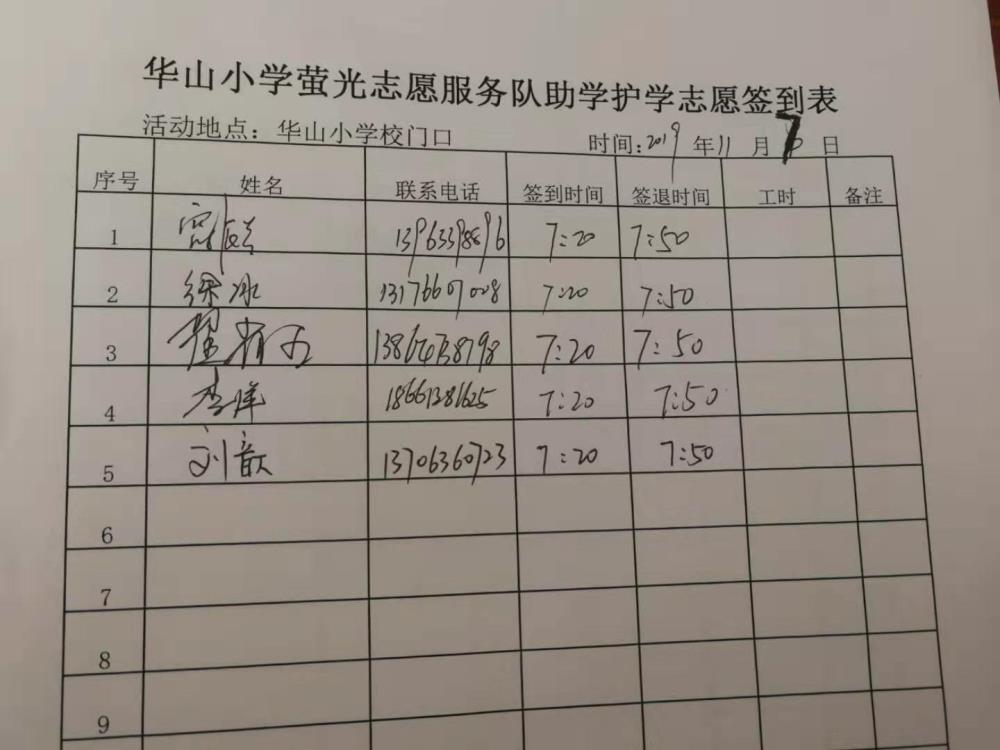 华山小学萤光志愿服务队助学护学志愿签到表
活动地点：华山小学校门口 时间：2019 年 11 月 7 日
序号 姓名 联系电话 签到时间 签退时间 工时 备注
1 13963398896 7:20 7:50
2 徐冰 13176607008 7:20 7:50
3 13864738798 7:20 7:50
4 李洋 18661381625 7:20 7:50
5 刘歆 13706360723 7:20 7:50
6
7
8
9